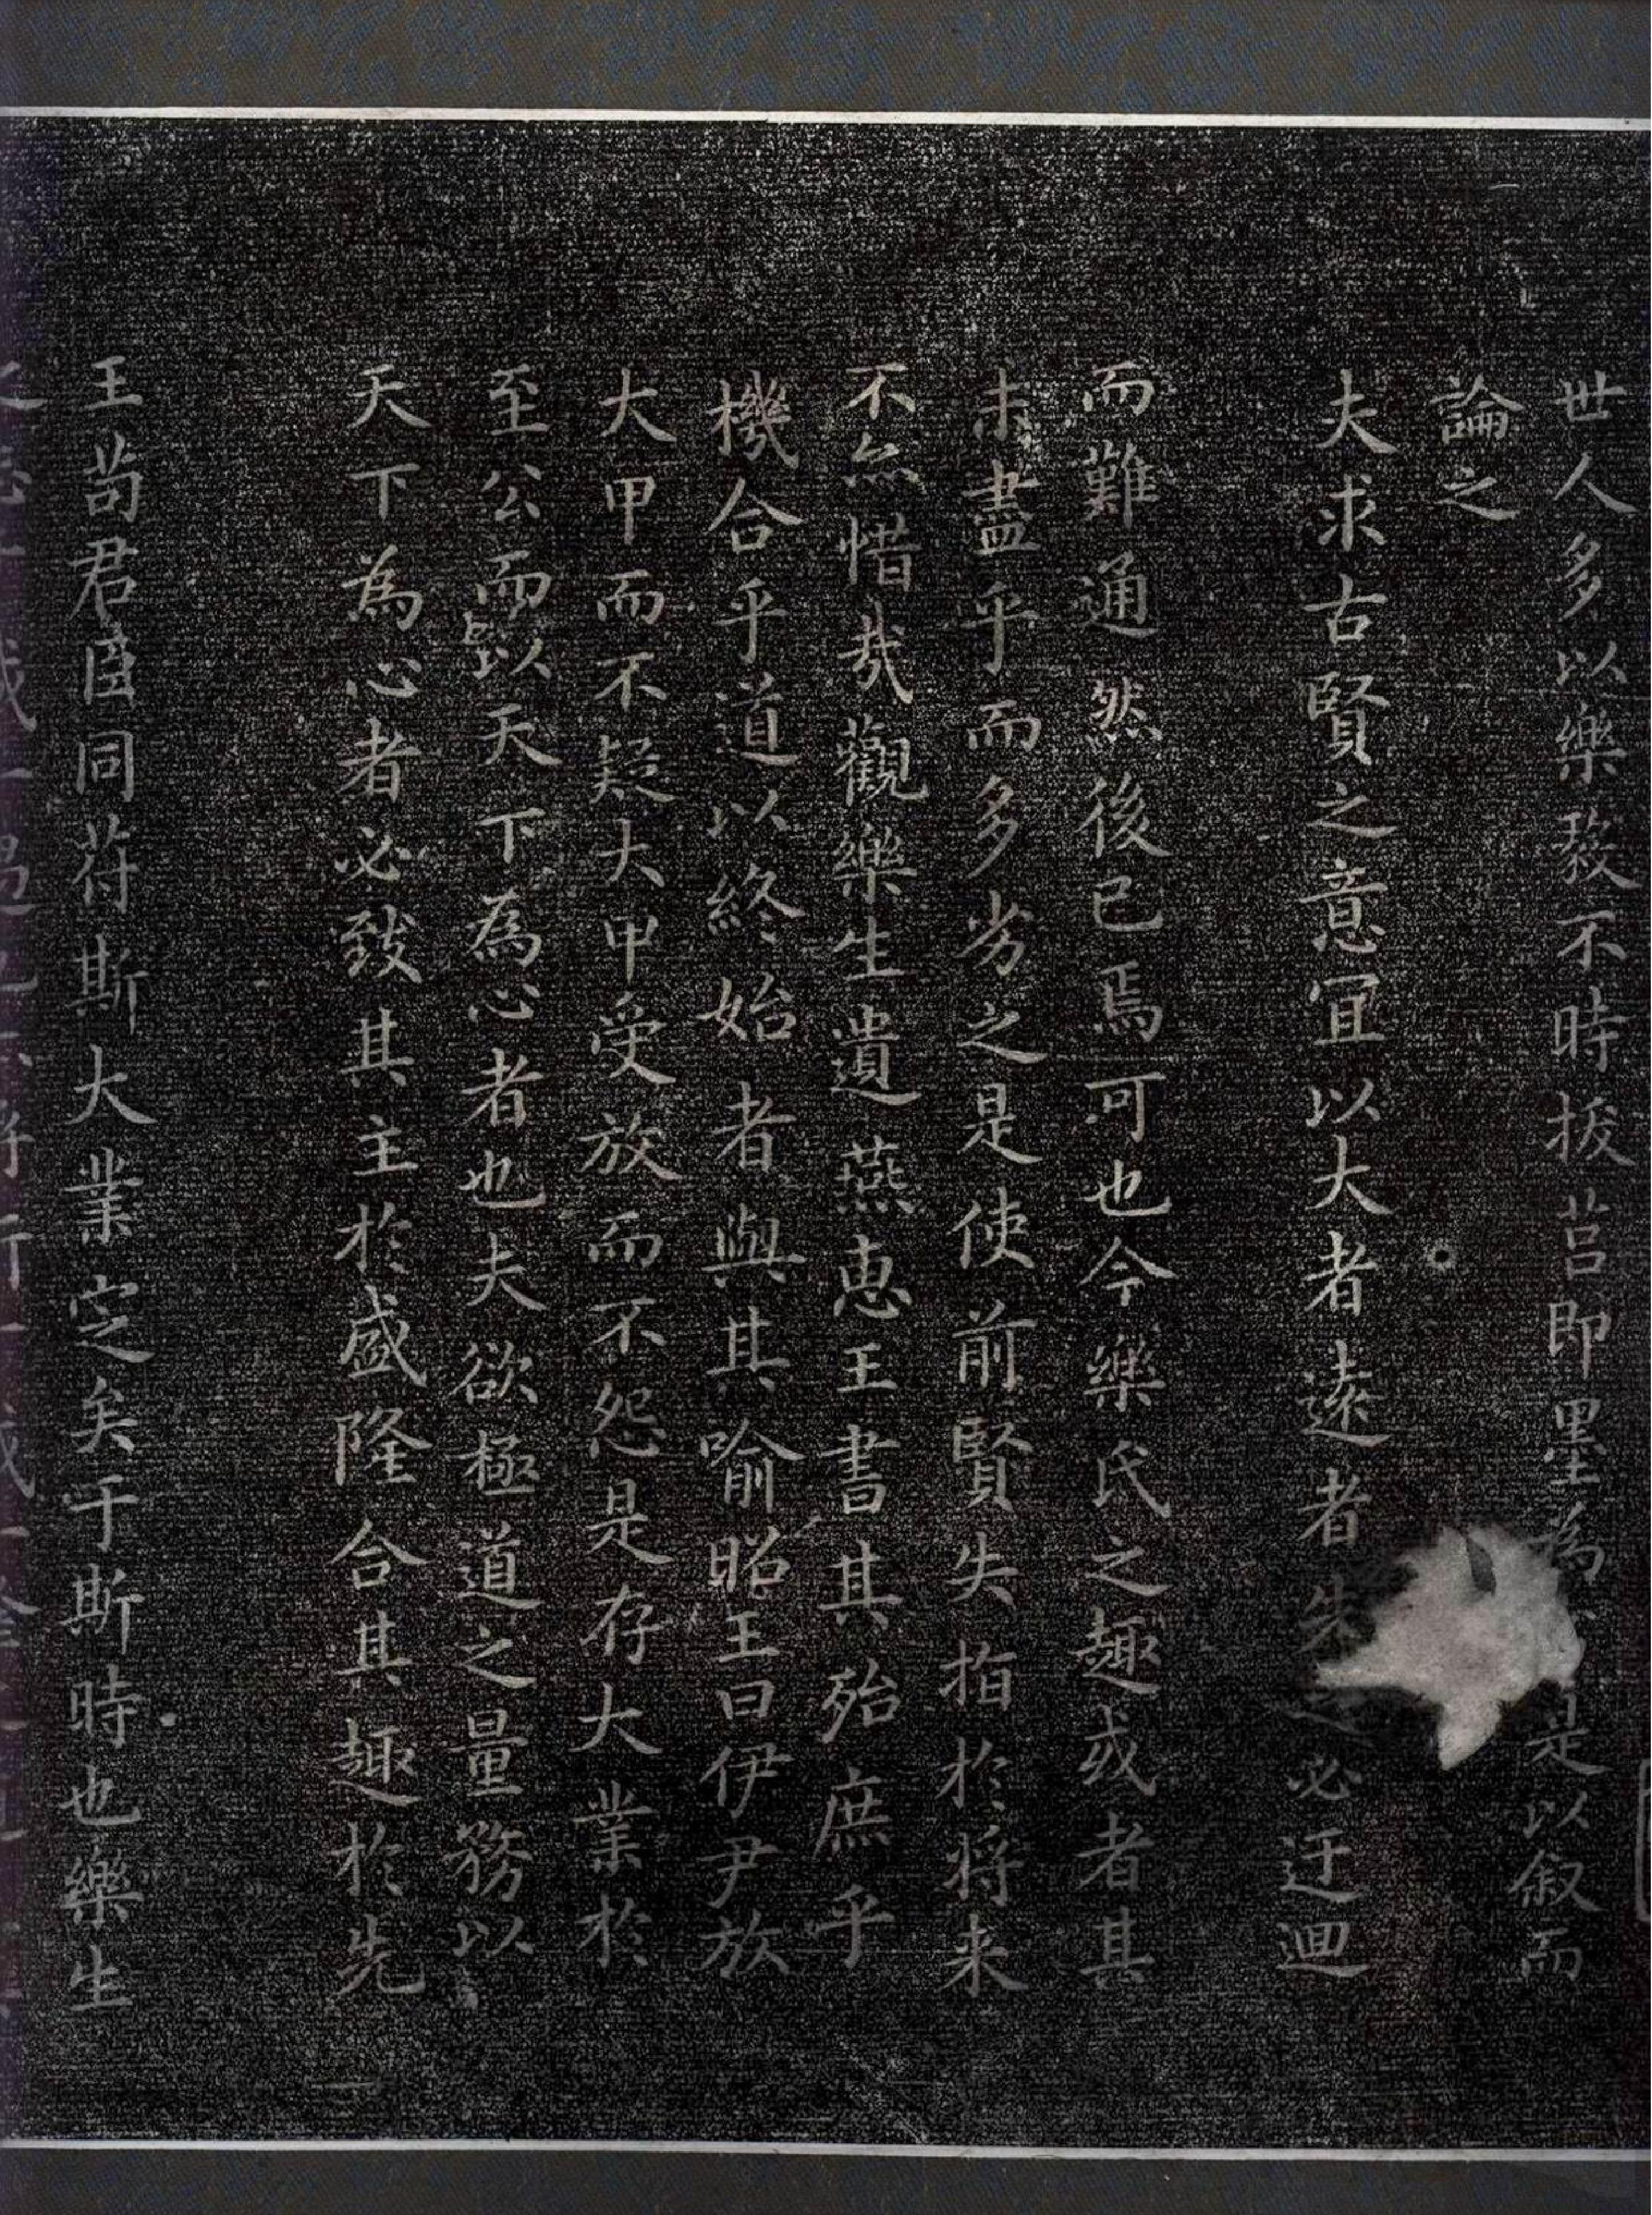 世人多以樂毅不時拔莒即墨為是以叙而
論之
夫求古賢之意宜以大者遠者先之必迂迴
而難通然後已焉可也今樂氏之趣或者其
未盡乎而多劣之是使前賢失指於將来
不亦惜哉觀樂生遺燕惠王書其殆庶乎
機合乎道以終始者與其喻昭王曰伊尹放
大甲而不疑大甲受放而不怨是存大業於
至公而以天下為心者也夫欲極道之量務以
天下為心者必致其主於盛隆合其趣於先
王苟君臣同符斯大業定矣于斯時也樂生